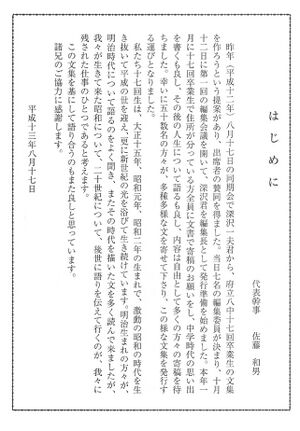 はじめに
代表幹事　佐藤　和男
昨年（平成十二年）八月十七日の同期会で深沢一夫君から、府立八中十七回卒業生の文集
を作ろうという提案があり、出席者の賛同を得ました。当日七名の編集委員が決まり、十月
十二日に第一回の編集会議を開いて、深沢君を編集長として発行準備を始めました。本年一
月に十七回卒業生で住所が分っている方全員に文書で寄稿のお願いをし、中学時代の思い出
を書くも良し、その後の人生について語るも良し、内容は自由として多くの方々の寄稿を待
ちました。幸いに五十数名の方々が、多種多様な文を寄せて下さり、この様な文集を発行す
る運びとなりました。
私たち十七回生は、大正十五年、昭和元年、昭和二年の生まれで、激動の昭和の時代を生
き抜いて平成の世を迎え、更に新世紀の光を浴びて生き続けています。明治生まれの方々が、
明治時代について語るのをよく聞き、またその時代を描いた文を多く読んで来ましたが、
我々が生きて来た昭和について、二十世紀について、後世に語りを伝えて行くのが、我々に
残された仕事のひとつであると考えます。
この文集を基にして語り合うのもまた良しと思っています。
諸兄のご協力に感謝します。
平成十三年八月十七日